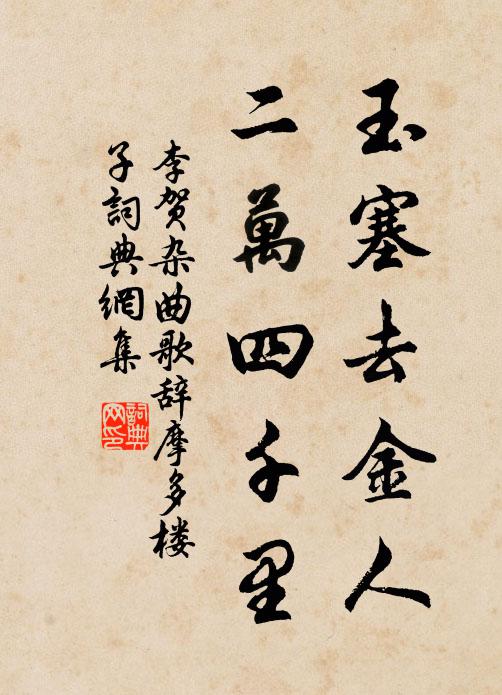 玉塞去金人
二萬四千里
李贺杂曲歌辞摩多楼
子詞典網集
詞典网印